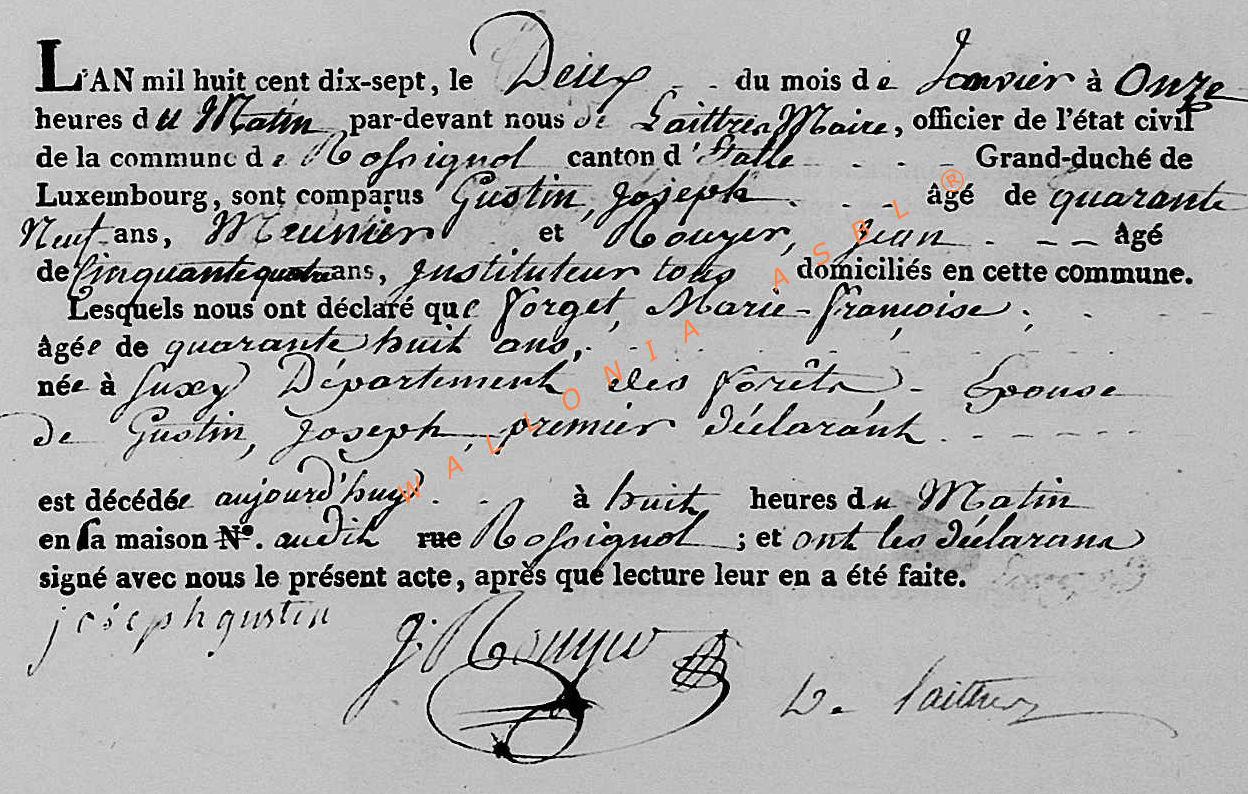 L'AN mil huit cent dix-sept, le Deux du mois de Janvier à Onze
heures du Matin par-devant nous de Laittres Maire, officier de l'état civil
de la commune de Rossignol canton d'Etalle Grand-duché de
Luxembourg, sont comparus Gustin, Joseph âgé de quarante
Neuf ans, Meunier et Rouyer, Jean âgé
de Cinquante quatre ans, Instituteur tous domiciliés en cette commune.
Lesquels nous ont déclaré que Forget, Marie-françoise,
âgée de quarante huit ans,
née à Suxy Département des forêts, Epouse
de Gustin, Joseph, premier déclarant
est décédée aujourd'huy à huit heures du Matin
en sa maison N°. audit rue Rossignol ; et ont les déclarans
signé avec nous le présent acte, après que lecture leur en a été faite.
joseph gustin
J. Rouyer
De Laittres
WALLONIA ASBL ®